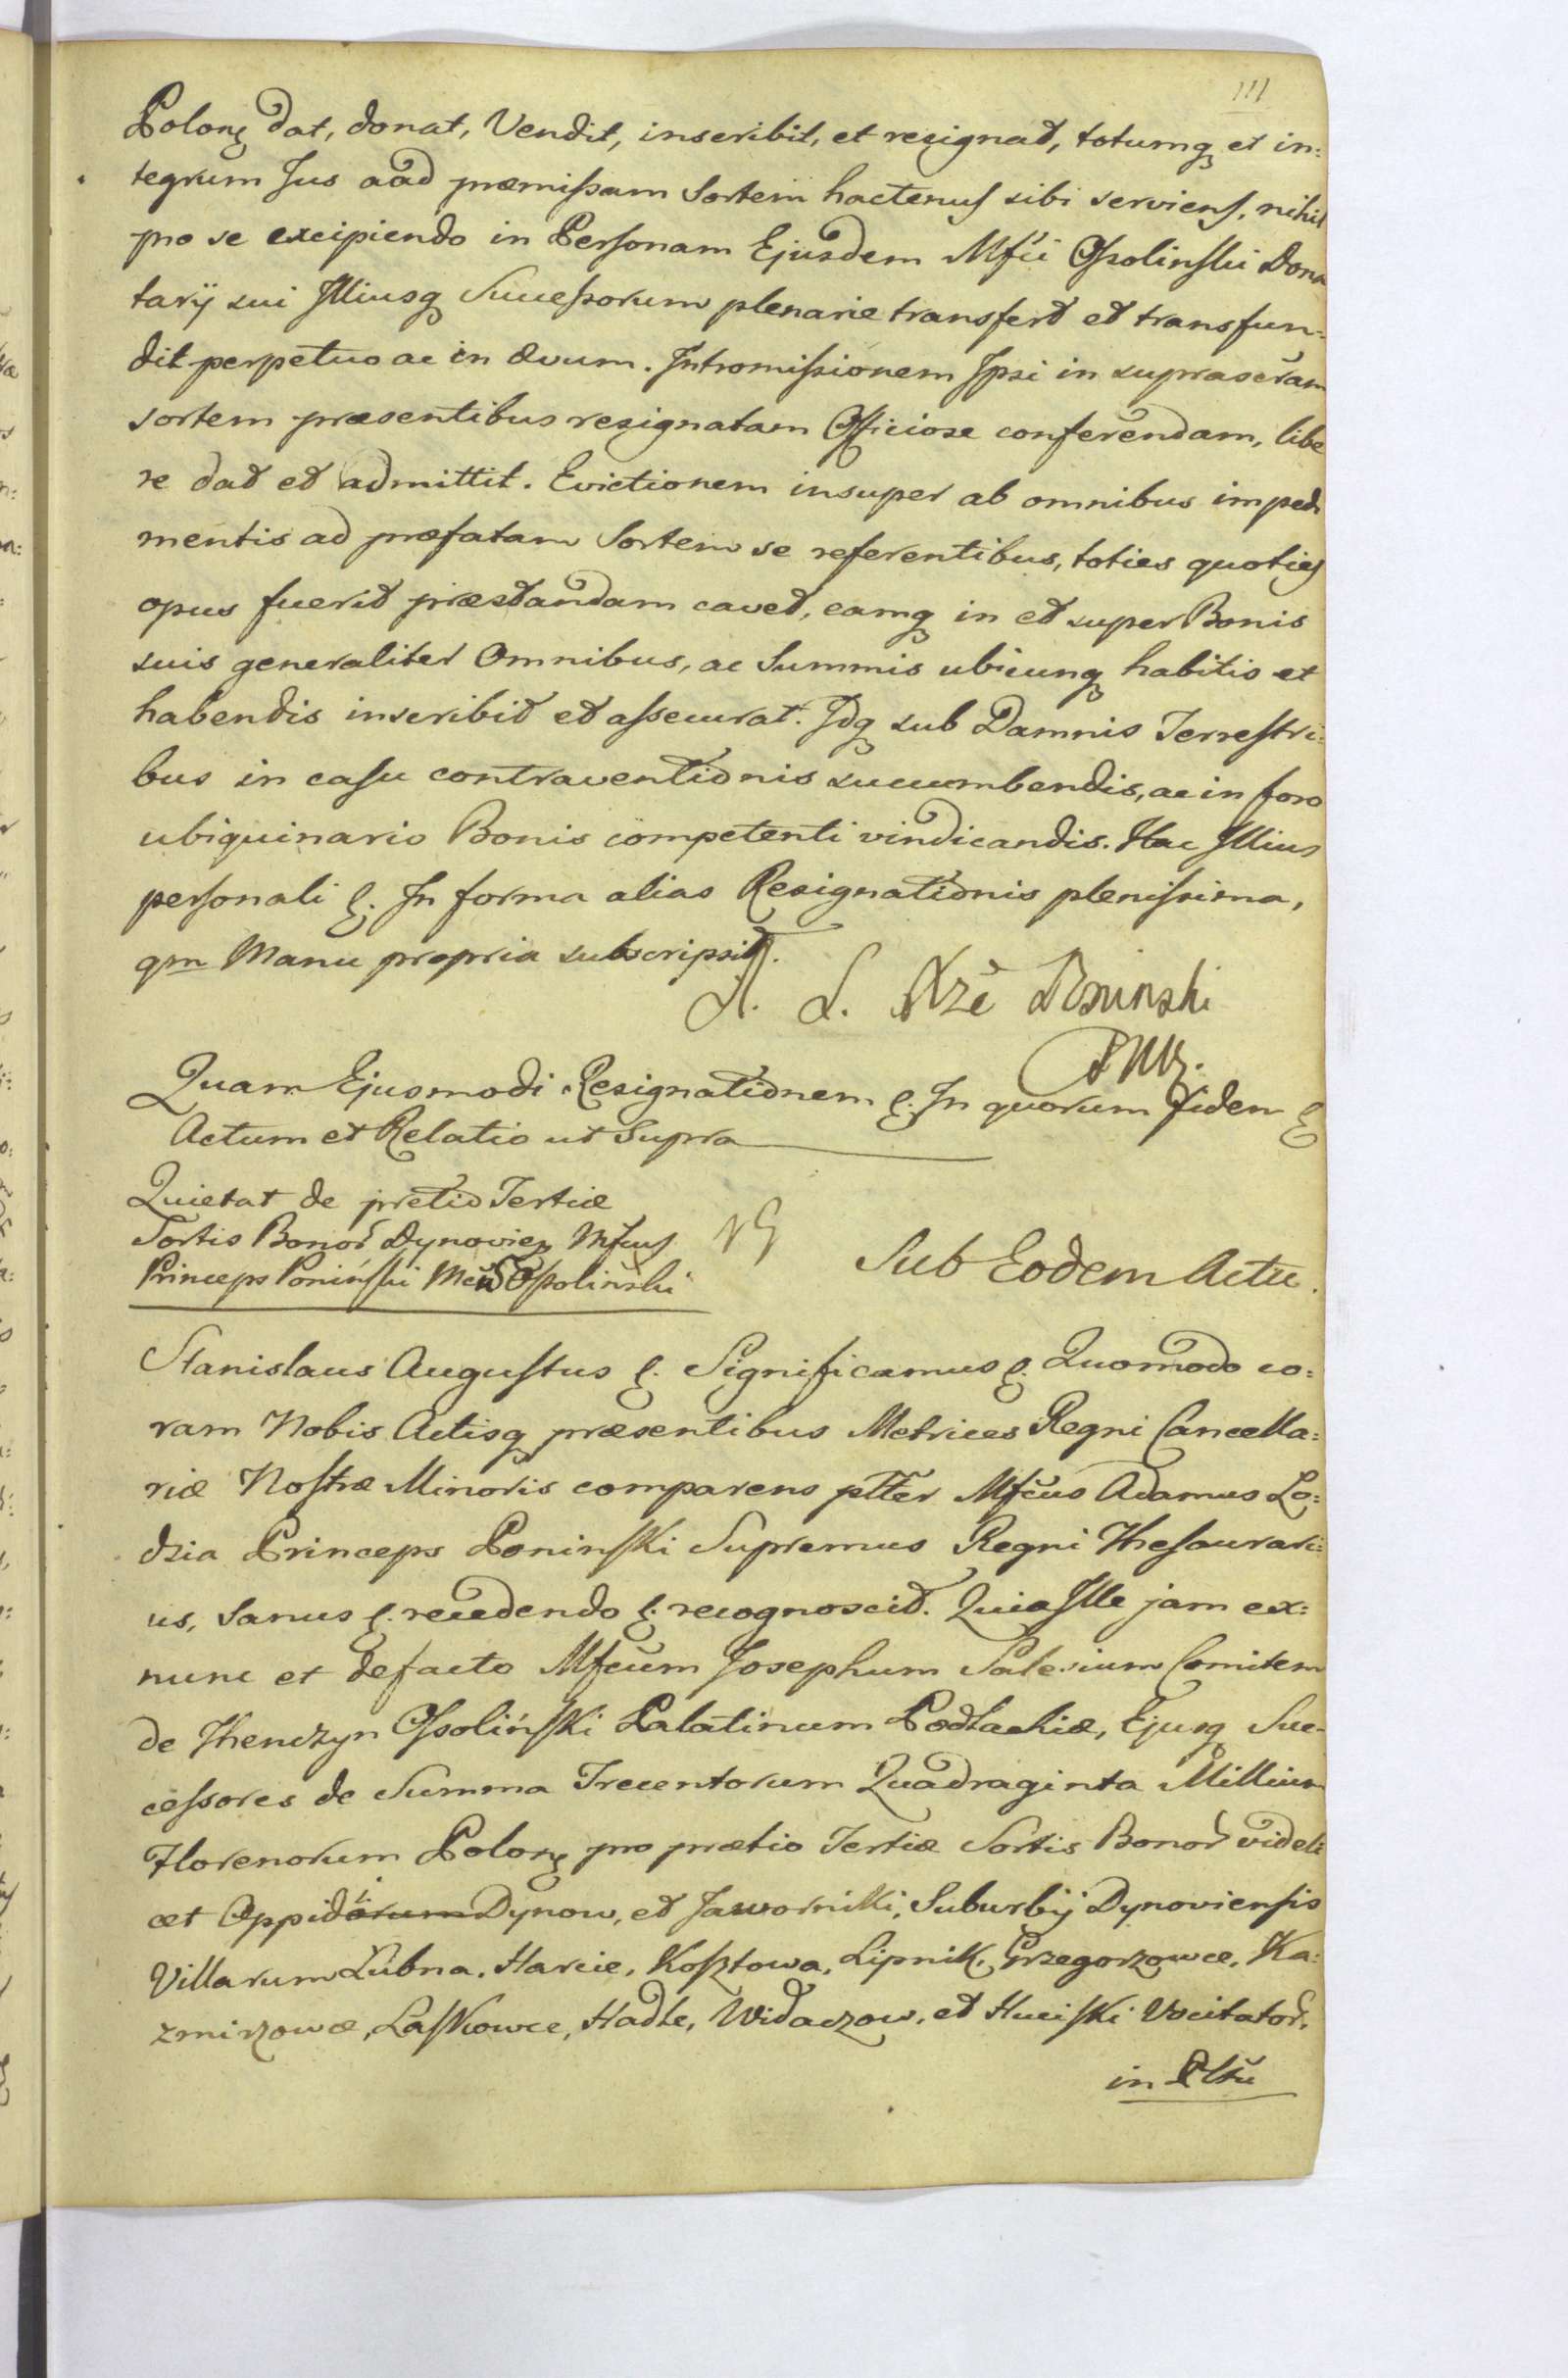 111
Polonꝫ dat, donat, Vendit, inscribit, et resignat, totumqꝫ et in:
tegrum Jus aad præmissam Sortem hactenus sibi serviens, nihil
pro se excipiendo in Personam Ejusdem Mfci Ossolinski Dona
tarij sui Illiusqꝫ Successorum plenarie transfert et transfun:
dit perpetuo ac in ævum. Intromissionem Ipsi in suprascram
sortem præsentibus resignatam Officiose conferendam, libe
re dat et admittit. Evictionem insuper ab omnibus impedi
mentis ad præfatam Sortem se referentibus, toties quoties
opus fuerit præstandam cavet, eamqꝫ in et super Bonis
suis generaliter Omnibus, ac Summis ubicunqꝫ habitis et
habendis inscribit et assecurat. Idqꝫ sub Damnis Terrestri:
bus in casu contraventionis succumbendis, ac in foro
ubiquinario Bonis competenti vindicandis. Hac Illius
personali &. In forma alias Resignationis plenissima,
qm Manu propria subscripsit.
A. L. Xże Poninski
PWK.
Quam Ejusmodi Resignationem &. In quorum fidem &
Actum et Relatio ut Supra
Quietat de pretio Tertiæ
Sortis Bonor Dynovien Mfcus
Princeps Poniński Mcum Ossoliński
Sub Eodem Actu.
Stanislaus Augustus &. Significamus &. Quomodo co:
ram Nobis Actisqꝫ præsentibus Metrices Regni Cancella:
riæ Nostræ Minoris comparens pltter Mfcus Adamus Lo:
dzia Princeps Poninski Supremus Regni Thesaurari:
us, Sanus &. recedendo &. recognoscit. Quia Ille jam ex:
nunc et defacto Mfcum Josephum Salesium Comitem
de Thenczyn Ossoliński Palatinum Podlachiæ, Ejusqꝫ Suc-
cessores de Summa Trecentorum Quadraginta Millium
Florenorum Polonꝫ pro prætio Tertiæ Sortis Bonor videli
cet Oppidorum i Dynow, et Jawornik, Suburbij Dynoviensis
Villarum Łubna, Harcie, Kosztowa, Lipnik, Grzegorzowce, Ka:
zmirzowce, Laskowce, Hadle, Widaczow, et Huciski Vocitator,
in Pltu